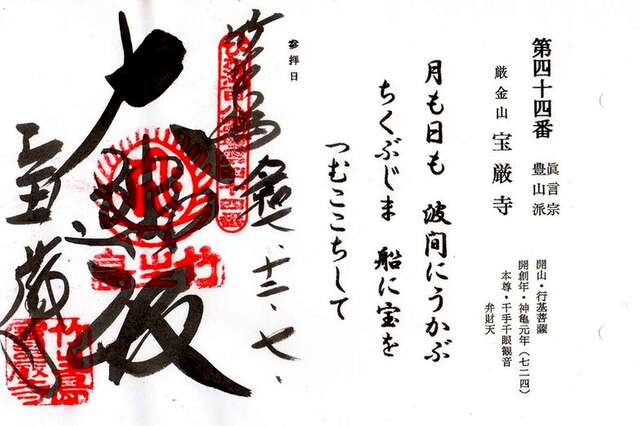 第四十四番
眞言宗
豊山派
厳金山 宝厳寺
開山・行基菩薩
開創年・神亀元年(七二四)
本尊・千手千眼観音
弁財天
月も日も 波間にうかぶ
ちくぶじま 船に宝を
つむここちして
参拝日
七、十二、七、
大悲殿
竹生島
宝厳寺